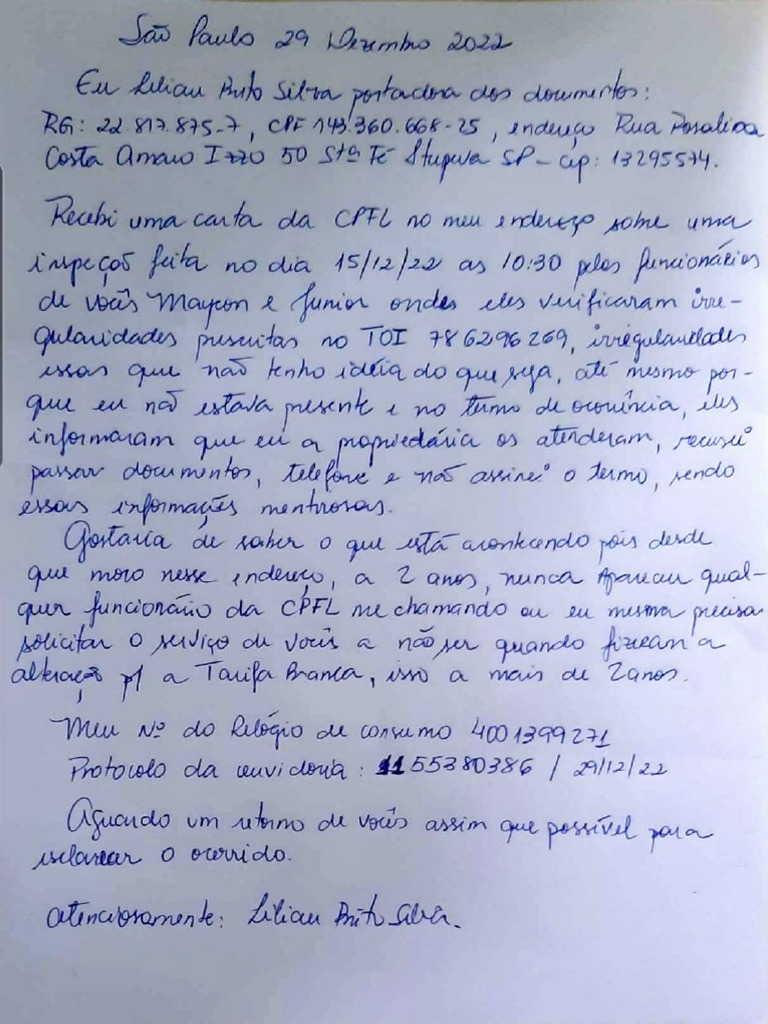 São Paulo 29 Dezembro 2022
Eu Lilian Brito Silva portadora dos documentos:
RG: 22.817.875-7, CPF 143.360.668-25, endereço Rua Rosalina
Costa Amaro Izzo 50 Stª Fé Itupeva SP - cep: 13295574.
Recebi uma carta da CPFL no meu endereço sobre uma
inspeção feita no dia 15/12/22 as 10:30 pelos funcionários
de vocês Maycon e Junior ondes eles verificaram irre-
gularidades prescritas no TOI 786296269, irregularidades
essas que não tenho idéia do que seja, até mesmo por-
que eu não estava presente e no termo de ocorrência, eles
informaram que eu a propriedária os atenderam, recusei
passar documentos, telefone e não assinei o termo, sendo
essas informações mentirosas.
Gostaria de saber o que está acontecendo pois desde
que moro nesse endereço, a 2 anos, nunca Apareceu qual-
quer funcionário da CPFL me chamando ou eu mesma precisa
solicitar o serviço de vocês a não ser quando fizeram a
alteração p/ a Tarifa Branca, isso a mais de 2 anos.
Meu Nº do Relógio de consumo 4001399271
Protocolo da ouvidoria: 1155380386 / 29/12/22
Aguardo um retorno de vocês assim que possível para
esclarecer o ocorrido.
atenciosamente: Lilian Brito Silva.